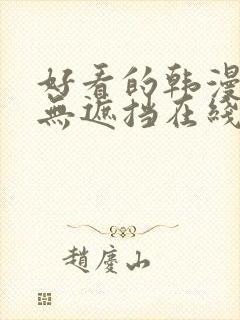 好看的韩漫
無遮挡在线
趙慶山